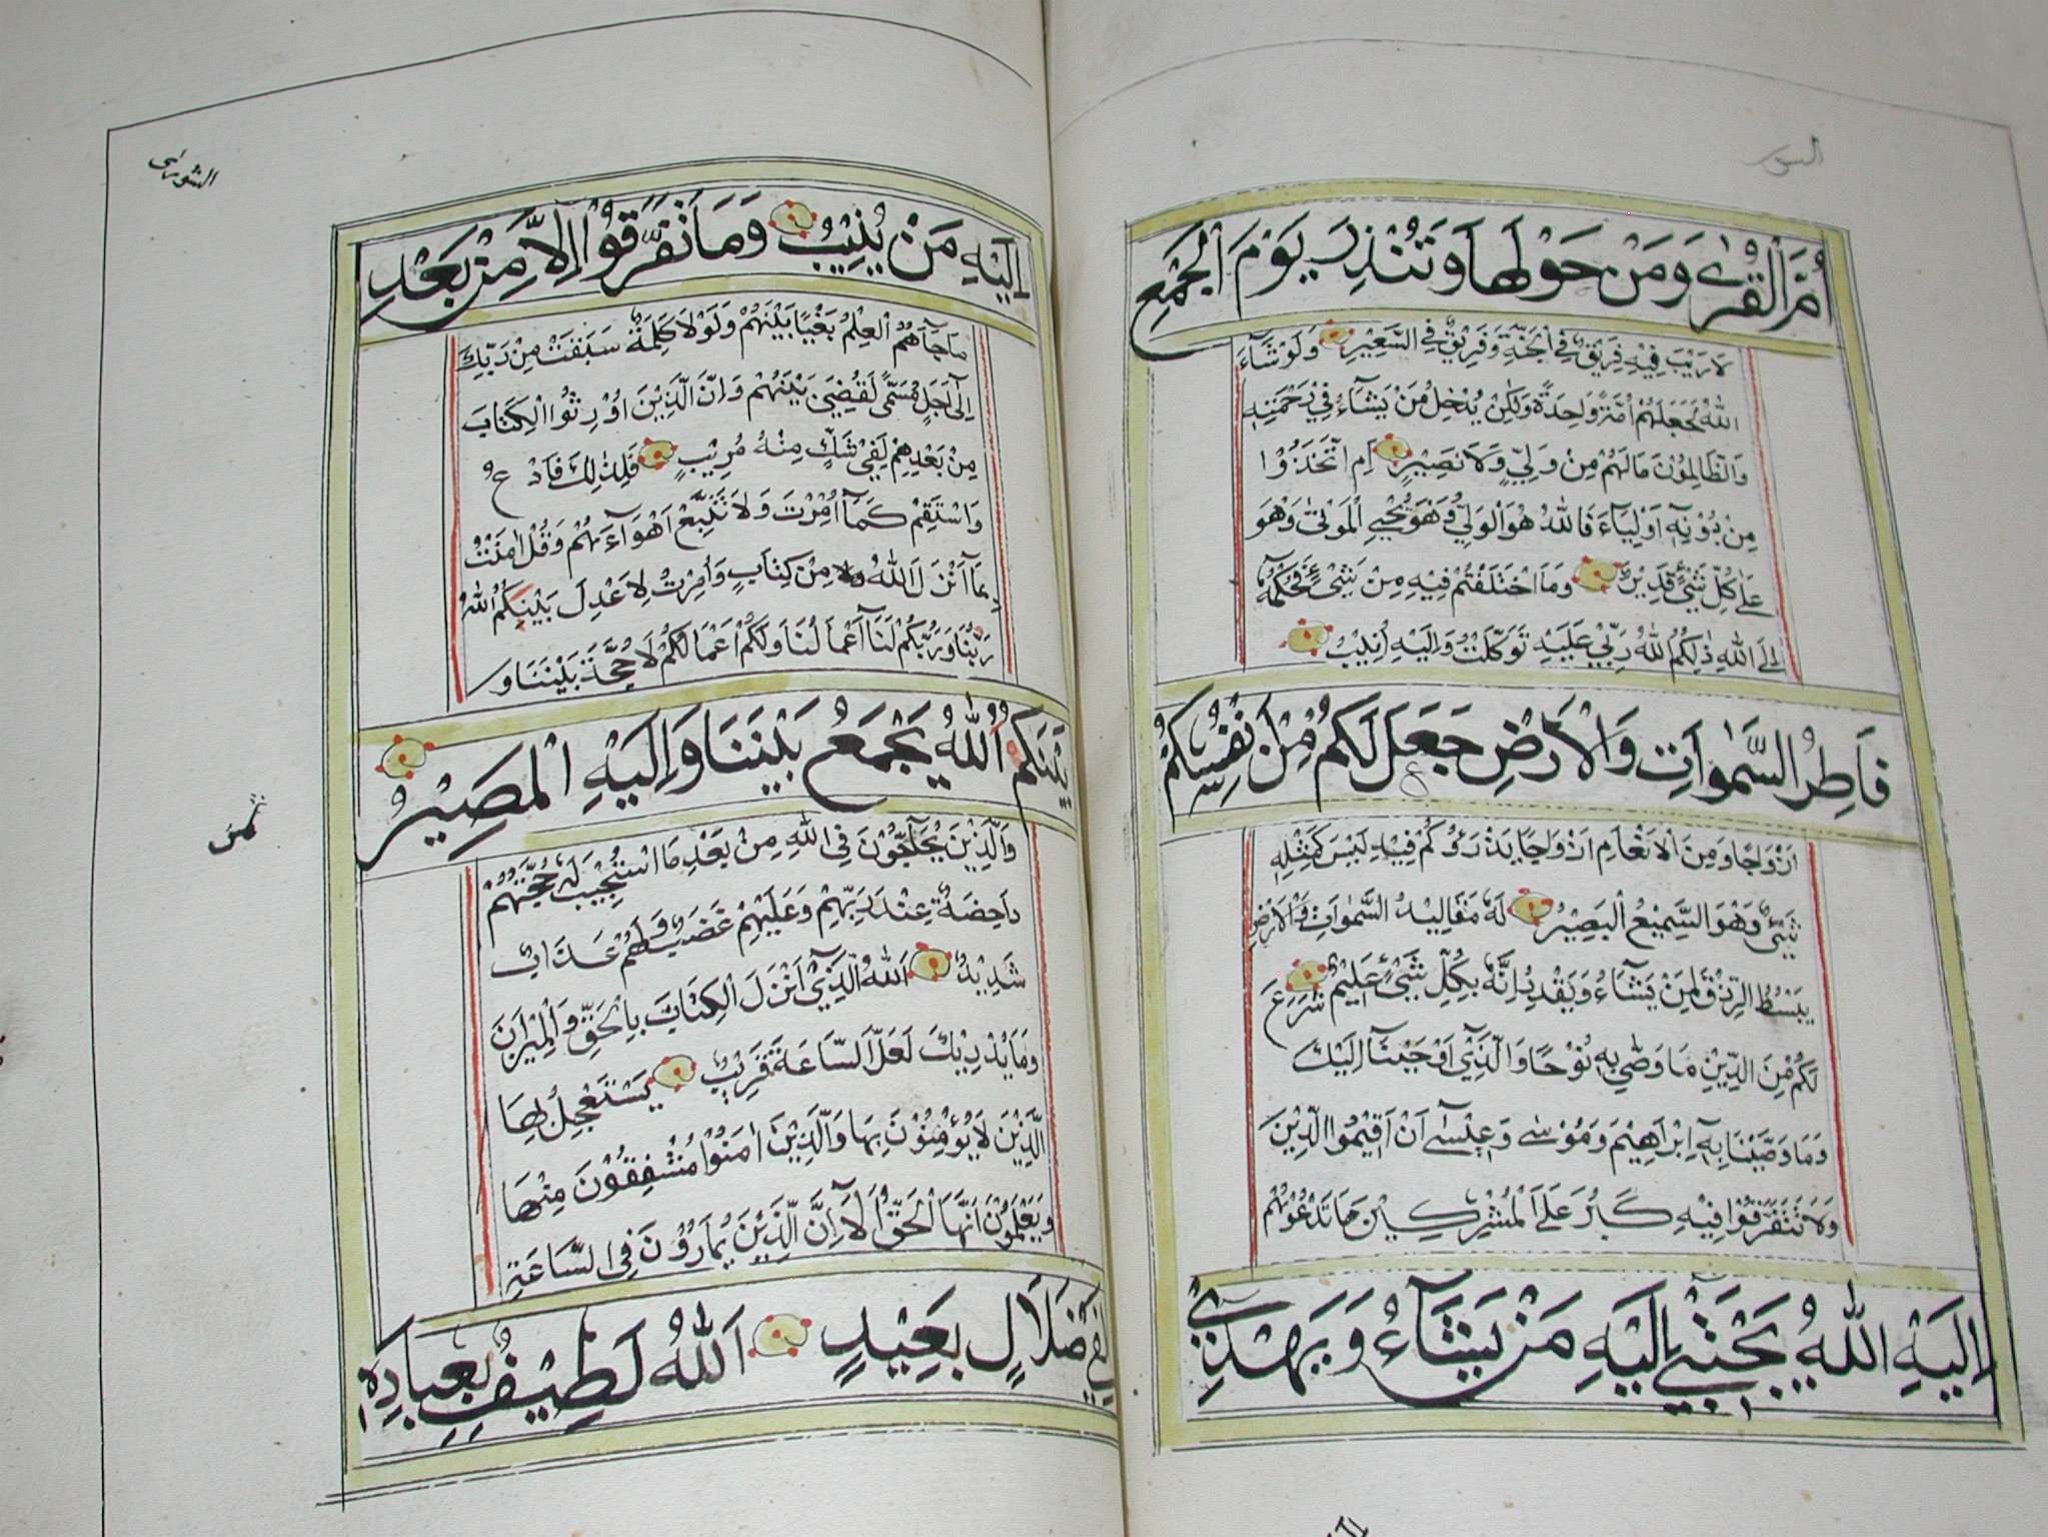 السور
أُمَّ الْقُرٰى وَمَنْ حَوْلَهَا وَتُنْذِرَ يَوْمَ الْجَمْعِ
لَا رَيْبَ فِيهِ فَرِيقٌ فِي الْجَنَّةِ وَفَرِيقٌ فِي السَّعِيرِ وَلَوْ شَآءَ
اللّٰهُ لَجَعَلَهُمْ اُمَّةً وَاحِدَةً وَلٰكِنْ يُدْخِلُ مَنْ يَشَآءُ فِي رَحْمَتِهِ
وَالظَّالِمُونَ مَالَهُمْ مِنْ وَلِيٍّ وَلَا نَصِيْرٍ اَمِ اتَّخَذُوْا
مِنْ دُوْنِهِ اَوْلِيَآءَ فَاللّٰهُ هُوَ الْوَلِيُّ وَهُوَ يُحْيِي الْمَوْتٰى وَهُوَ
عَلٰى كُلِّ شَيْءٍ قَدِيْرٌ وَمَا اخْتَلَفْتُمْ فِيْهِ مِنْ شَيْءٍ فَحُكْمُهُ
اِلَى اللّٰهِ ذٰلِكُمُ اللّٰهُ رَبِّيْ عَلَيْهِ تَوَكَّلْتُ وَاِلَيْهِ اُنِيْبُ
فَاطِرُ السَّمٰوَاتِ وَالْاَرْضِ جَعَلَ لَكُمْ مِنْ اَنْفُسِكُمْ
اَزْوَاجًا وَمِنَ الْاَنْعَامِ اَزْوَاجًا يَذْرَؤُكُمْ فِيْهِ لَيْسَ كَمِثْلِهِ
شَيْءٌ وَهُوَ السَّمِيْعُ الْبَصِيْرُ لَهُ مَقَالِيْدُ السَّمٰوَاتِ وَالْاَرْضِ
يَبْسُطُ الرِّزْقَ لِمَنْ يَشَآءُ وَيَقْدِرُ اِنَّهُ بِكُلِّ شَيْءٍ عَلِيْمٌ شَرَعَ
لَكُمْ مِنَ الدِّيْنِ مَا وَصّٰى بِهِ نُوْحًا وَالَّذِيْ اَوْحَيْنَا اِلَيْكَ
وَمَا وَصَّيْنَا بِهِ اِبْرَاهِيْمَ وَمُوْسٰى وَعِيْسٰى اَنْ اَقِيْمُوا الدِّيْنَ
وَلَا تَتَفَرَّقُوْا فِيْهِ كَبُرَ عَلَى الْمُشْرِكِيْنَ مَا تَدْعُوْهُمْ
اِلَيْهِ اَللّٰهُ يَجْتَبِيْ اِلَيْهِ مَنْ يَشَآءُ وَيَهْدِيْ
الشورى
اِلَيْهِ مَنْ يُنِيْبُ وَمَا تَفَرَّقُوْا اِلَّا مِنْ بَعْدِ
مَا جَآءَهُمُ الْعِلْمُ بَغْيًا بَيْنَهُمْ وَلَوْلَا كَلِمَةٌ سَبَقَتْ مِنْ رَبِّكَ
اِلٰى اَجَلٍ مُسَمًّى لَقُضِيَ بَيْنَهُمْ وَاِنَّ الَّذِيْنَ اُوْرِثُوا الْكِتَابَ
مِنْ بَعْدِهِمْ لَفِيْ شَكٍّ مِنْهُ مُرِيْبٍ فَلِذٰلِكَ فَادْعُ
وَاسْتَقِمْ كَمَا اُمِرْتَ وَلَا تَتَّبِعْ اَهْوَآءَهُمْ وَقُلْ اٰمَنْتُ
بِمَا اَنْزَلَ اللّٰهُ مِنْ كِتَابٍ وَاُمِرْتُ لِاَعْدِلَ بَيْنَكُمُ اللّٰهُ
رَبُّنَا وَرَبُّكُمْ لَنَا اَعْمَالُنَا وَلَكُمْ اَعْمَالُكُمْ لَا حُجَّةَ بَيْنَنَا وَ
بَيْنَكُمُ اللّٰهُ يَجْمَعُ بَيْنَنَا وَاِلَيْهِ الْمَصِيْرُ
وَالَّذِيْنَ يُحَآجُّوْنَ فِي اللّٰهِ مِنْ بَعْدِ مَا اسْتُجِيْبَ لَهُ حُجَّتُهُمْ
دَاحِضَةٌ عِنْدَ رَبِّهِمْ وَعَلَيْهِمْ غَضَبٌ وَلَهُمْ عَذَابٌ
شَدِيْدٌ اَللّٰهُ الَّذِيْ اَنْزَلَ الْكِتَابَ بِالْحَقِّ وَالْمِيْزَانَ
وَمَا يُدْرِيْكَ لَعَلَّ السَّاعَةَ قَرِيْبٌ يَسْتَعْجِلُ بِهَا
الَّذِيْنَ لَا يُؤْمِنُوْنَ بِهَا وَالَّذِيْنَ اٰمَنُوْا مُشْفِقُوْنَ مِنْهَا
وَيَعْلَمُوْنَ اَنَّهَا الْحَقُّ اَلَا اِنَّ الَّذِيْنَ يُمَارُوْنَ فِي السَّاعَةِ
لَفِيْ ضَلَالٍ بَعِيْدٍ اَللّٰهُ لَطِيْفٌ بِعِبَادِهِ